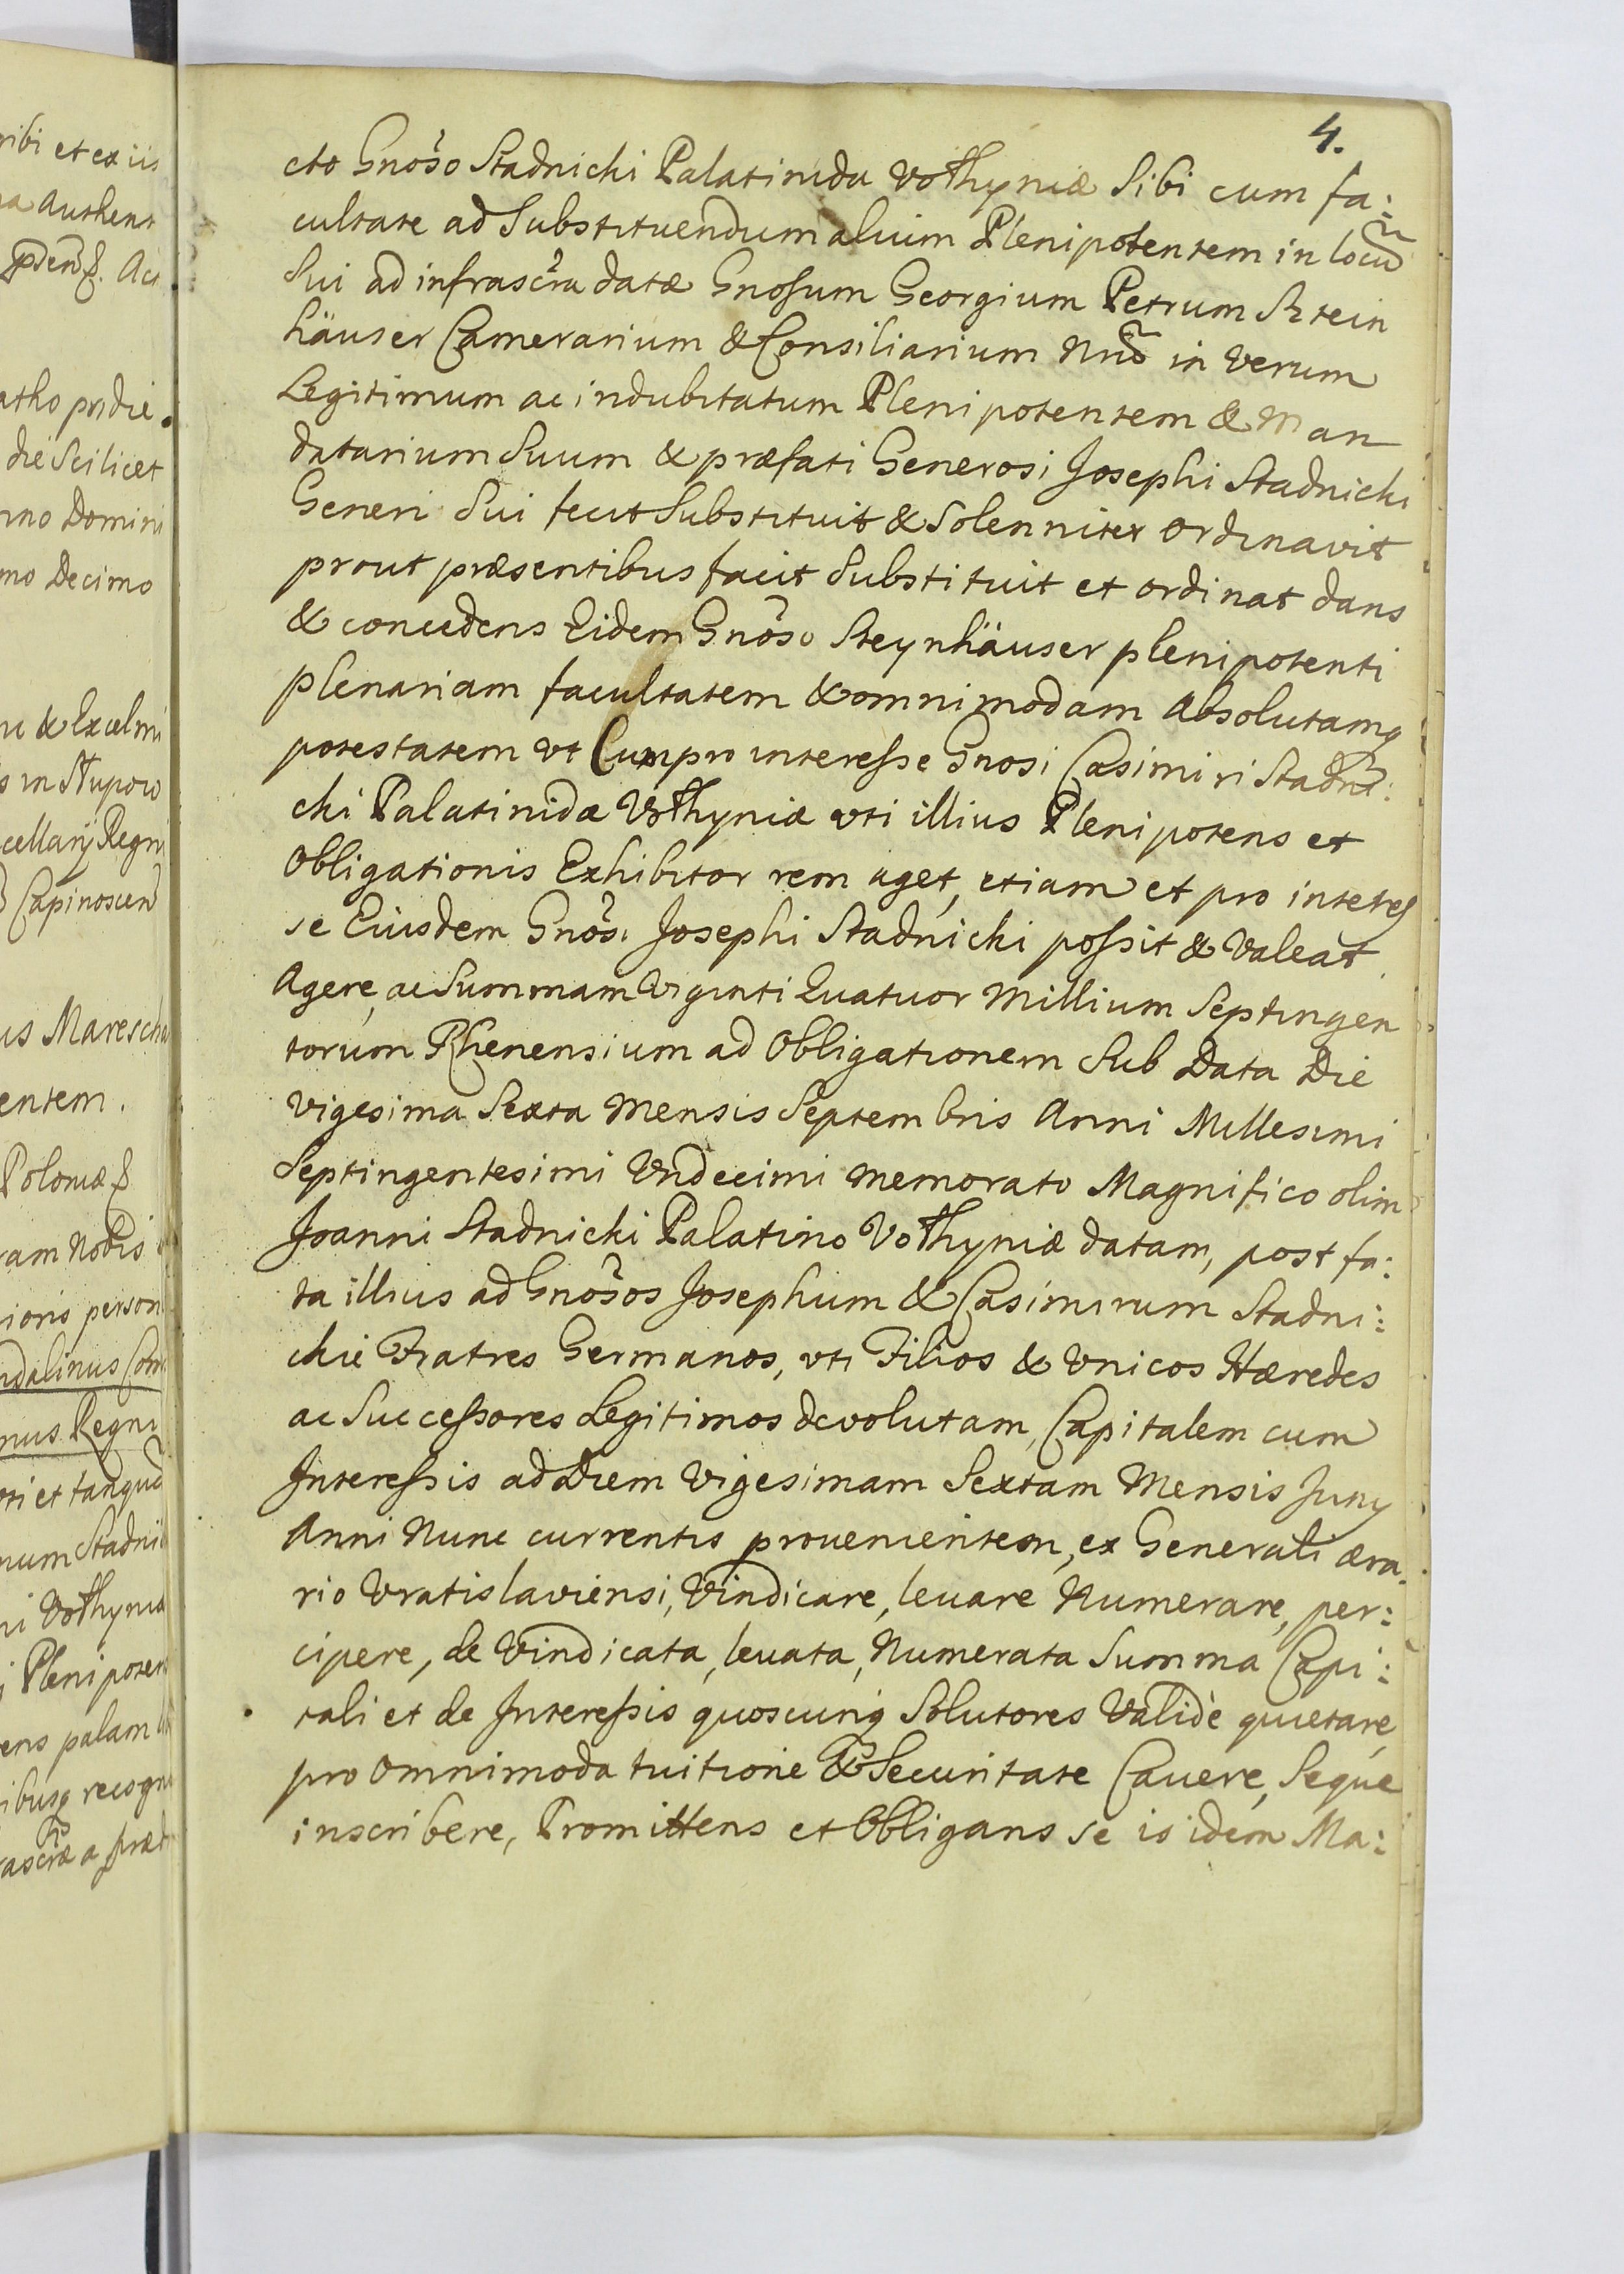 4.
cto Gnõso Stadnicki Palatinida Wołhyniæ Sibi cum fa:
cultate ad Substituendum alium Plenipotentem in locũ
Sui ad infrascr̃a datæ Gnosum Georgium Petrum Stein
häuser Camerarium & Consiliarium Nnõ in Verum
Legitimum ac indubitatum Plenipotentem & Man
datarium Suum & præfati Generosi Josephi Stadnicki
Generi Sui fecit Substituit & Solenniter Ordinavit
prout præsentibus facit Substituit et ordinat dans
& concedens Eidem Gnõso Steynhäuser plenipotenti
plenariam facultatem & omnimodam Absolutamq
potestatem vt Cum pro interesse Gnosi Casimiri Stadni:
cki Palatinidæ Wołhyniæ vti illius Plenipotens et
Obligationis Exhibitor rem aget, etiam et pro interes
se Eiusdem Gnõsi Josephi Stadnicki possit & Valeat
Agere, ac Summam Viginti Quatuor Millium Septingen
torum Rhenensium ad Obligationem Sub Data Die
vigesima Sexta Mensis Septembris Anni Millesimi
Septingentesimi Undecimi memorato Magnifico olim
Joanni Stadnicki Palatino Wołhyniæ datam, post fa:
ta illius ad Gnõsos Josephum & Casimirum Stadni:
ckie Fratres Germanos, vti Filios & Vnicos Hæredes
ac Successores Legitimos devolutam, Capitalem cum
Interessis ad Diem Vigesimam Sextam Mensis Juny
Anni Nunc currentis provenientem, ex Generali æra:
rio Vratislaviensi, Vindicare, levare Numerare, per:
cipere, de Vindicata, levata, Numerata Summa Capi:
tali et de Interessis quoscunq Solutores Validè quietare,
pro omnimoda tuitione & Securitate Cavere, Seque
inscribere, Promittens et Obligans se is idem Ma: